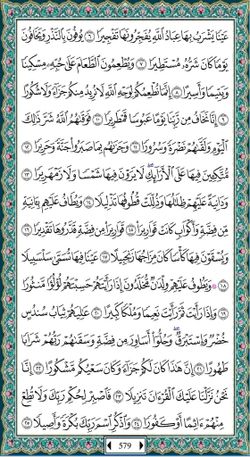 عَيْنًا يَشْرَبُ بِهَا عِبَادُ ٱللَّهِ يُفَجِّرُونَهَا تَفْجِيرًا ٦ يُوفُونَ بِٱلنَّذْرِ وَيَخَافُونَ
يَوْمًا كَانَ شَرُّهُۥ مُسْتَطِيرًا ٧ وَيُطْعِمُونَ ٱلطَّعَامَ عَلَىٰ حُبِّهِۦ مِسْكِينًا
وَيَتِيمًا وَأَسِيرًا ٨ إِنَّمَا نُطْعِمُكُمْ لِوَجْهِ ٱللَّهِ لَا نُرِيدُ مِنكُمْ جَزَآءً وَلَا شُكُورًا
٩ إِنَّا نَخَافُ مِن رَّبِّنَا يَوْمًا عَبُوسًا قَمْطَرِيرًا ١٠ فَوَقَىٰهُمُ ٱللَّهُ شَرَّ ذَٰلِكَ
ٱلْيَوْمِ وَلَقَّىٰهُمْ نَضْرَةً وَسُرُورًا ١١ وَجَزَىٰهُم بِمَا صَبَرُوا۟ جَنَّةً وَحَرِيرًا
١٢ مُّتَّكِـِٔينَ فِيهَا عَلَى ٱلْأَرَآئِكِ ۖ لَا يَرَوْنَ فِيهَا شَمْسًا وَلَا زَمْهَرِيرًا
١٣ وَدَانِيَةً عَلَيْهِمْ ظِلَٰلُهَا وَذُلِّلَتْ قُطُوفُهَا تَذْلِيلًا ١٤ وَيُطَافُ عَلَيْهِم بِـَٔانِيَةٍ
مِّن فِضَّةٍ وَأَكْوَابٍ كَانَتْ قَوَارِيرَا۠ ١٥ قَوَارِيرَا۟ مِن فِضَّةٍ قَدَّرُوهَا تَقْدِيرًا ١٦
وَيُسْقَوْنَ فِيهَا كَأْسًا كَانَ مِزَاجُهَا زَنجَبِيلًا ١٧ عَيْنًا فِيهَا تُسَمَّىٰ سَلْسَبِيلًا
١٨ ۞ وَيَطُوفُ عَلَيْهِمْ وِلْدَٰنٌ مُّخَلَّدُونَ إِذَا رَأَيْتَهُمْ حَسِبْتَهُمْ لُؤْلُؤًا مَّنثُورًا
١٩ وَإِذَا رَأَيْتَ ثَمَّ رَأَيْتَ نَعِيمًا وَمُلْكًا كَبِيرًا ٢٠ عَٰلِيَهُمْ ثِيَابُ سُندُسٍ
خُضْرٌ وَإِسْتَبْرَقٌ ۖ وَحُلُّوٓا۟ أَسَاوِرَ مِن فِضَّةٍ وَسَقَىٰهُمْ رَبُّهُمْ شَرَابًا
طَهُورًا ٢١ إِنَّ هَٰذَا كَانَ لَكُمْ جَزَآءً وَكَانَ سَعْيُكُم مَّشْكُورًا ٢٢ إِنَّا
نَحْنُ نَزَّلْنَا عَلَيْكَ ٱلْقُرْءَانَ تَنزِيلًا ٢٣ فَٱصْبِرْ لِحُكْمِ رَبِّكَ وَلَا تُطِعْ
مِنْهُمْ ءَاثِمًا أَوْ كَفُورًا ٢٤ وَٱذْكُرِ ٱسْمَ رَبِّكَ بُكْرَةً وَأَصِيلًا ٢٥
579